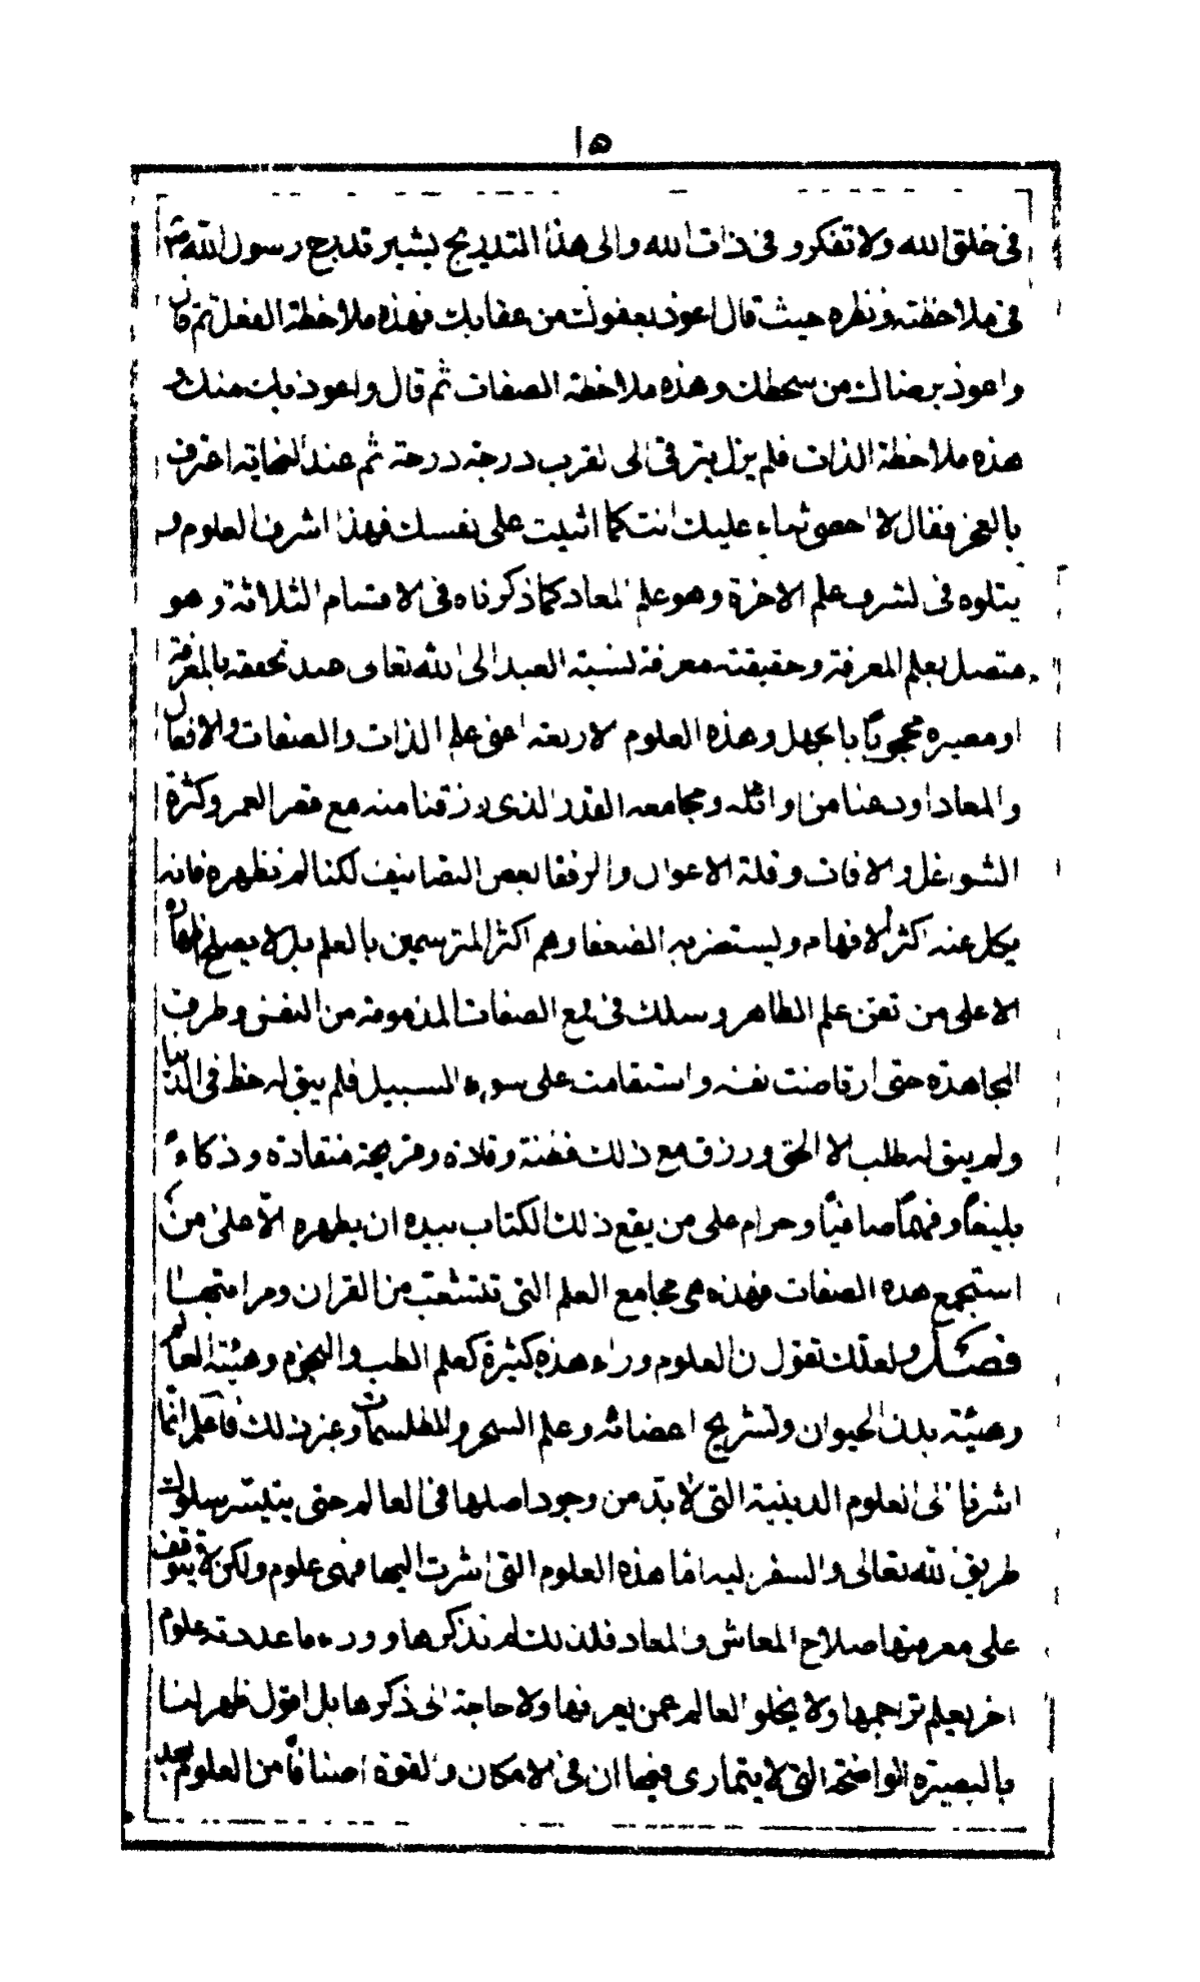 ١٥
في خلق الله ولا تفكروا في ذات الله والى هذا التدريج يشير تدرج رسول الله ص
في ملاحظته ونظره حيث قال اعوذ بعفوك من عقابك فهذه ملاحظة الفعل ثم قال
واعوذ برضاك من سخطك وهذه ملاحظة الصفات ثم قال واعوذ بك منك و
هذه ملاحظة الذات فلم يزل يترقى الى القرب درجة درجة ثم عند النهاية اعترف
بالعجز فقال لا احصى ثناء عليك انت كما اثنيت على نفسك فهذا اشرف العلوم و
يتلوه في الشرف علم الاخرة وهو علم المعاد كما ذكرناه في الاقسام الثلاثة وهو
متصل بعلم المعرفة وحقيقته معرفة نسبة العبد الى الله تعالى عند تحققه بالمعرفة
او مصيره محجوبًا بالجهل وهذه العلوم الاربعة اعنى علم الذات والصفات والافعال
والمعاد اودعنا من اوائله ومجامعه القدر الذى رزقنا منه مع قصر العمر وكثرة
الشواغل والافات وقلة الاعوان والرفقا بعض التصانيف لكنا لم نظهره فانه
يكل عنه اكثر الافهام ويستضر به الضعفا وهم اكثر المترسمين بالعلم بل لا يصلح اظهاره
الا على من تقن علم الظاهر وسلك في قمع الصفات المذمومة من النفس وطرق
المجاهدة حتى ارتاضت نفسه واستقامت على سواء السبيل فلم يبق له حظ في الدنيا
ولم يبق له طلب الا الحق ورزق مع ذلك فطنة وقادة وقريحة منقادة وذكاءً
بليغًا وفهمًا صافيًا وحرام على من يقع ذلك الكتاب بيده ان يظهره الّا على من
استجمع هذه الصفات فهذه هى مجامع العلم التى تتشعب من القران ومراتبها
فصل ولعلك تقول ان العلوم وراء هذه كثيرة كعلم الطب والنجوم وهيئة العالم
وهيئة بدن الحيوان وتشريح اعضائه وعلم السحر والطلسمات وغير ذلك فاعلم انما
اشرنا الى العلوم الدينية التى لا بدّ من وجود اصلها في العالم حتى يتيسّر سلوك
طريق الله تعالى والسفر اليه امّا هذه العلوم التى اشرت اليها فهى علوم ولكن لا يتوقف
على معرفتها صلاح المعاش والمعاد فلذلك لم نذكرها ووراء ما عددته علوم
اخر يعلم تراجمها ولا يخلو العالم عمن يعرفها ولا حاجة الى ذكرها بل اقول ظهر لنا
بالبصيرة الواضحة التى لا يتمارى فيها ان في الامكان والقوة اصنافًا من العلوم بعد